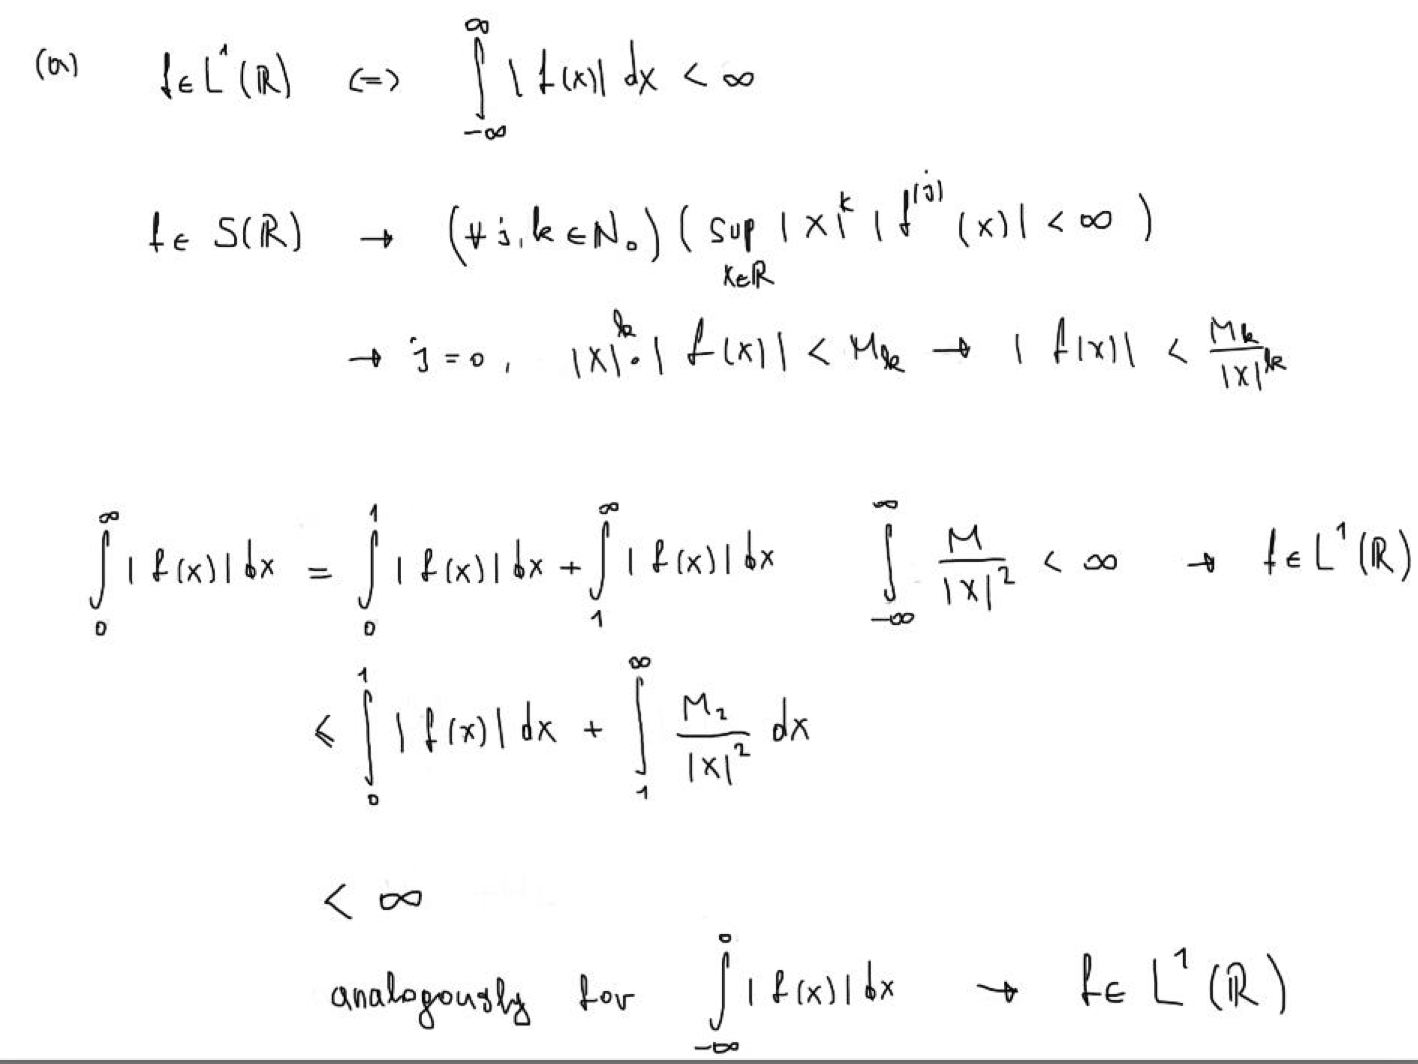 (a) f ∈ L¹(ℝ) (=) ∞∫-∞ | f(x)| dx < ∞
f ∈ S(ℝ) → (∀ j, k ∈ ℕ₀) ( sup x∈ℝ |x|^k | f^(j) (x)| < ∞ )
→ j = 0, |x|^k · | f(x)| < M_k → | f(x)| < M_k / |x|^k
∫_0^∞ | f(x)| dx = ∫_0^1 | f(x)| dx + ∫_1^∞ | f(x)| dx ∫_-∞^∞ M / |x|² < ∞ → f ∈ L¹(ℝ)
≤ ∫_0^1 | f(x)| dx + ∫_1^∞ M₂ / |x|² dx
< ∞
analogously for ∫_-∞^0 | f(x)| dx → f ∈ L¹(ℝ)